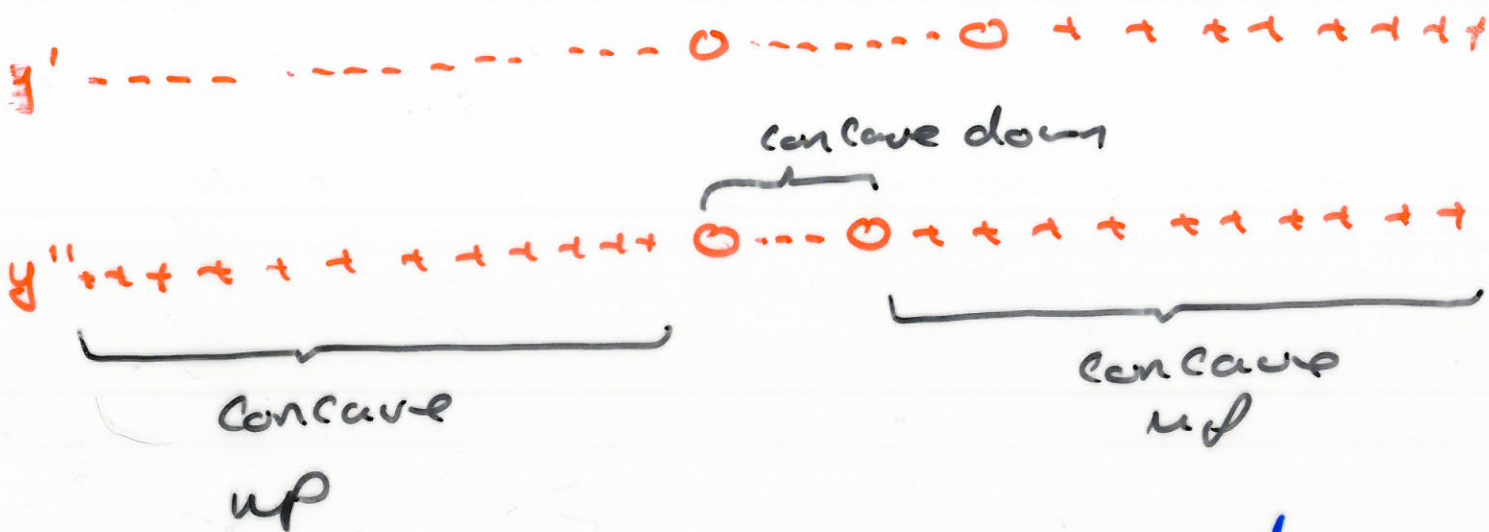 y' ---- ---- - -- --- O ------- O + + + + + + + +
concave down
y'' + + + + + + + + + + + + O ---- O + + + + + + + + + +
concave
up
concave
up